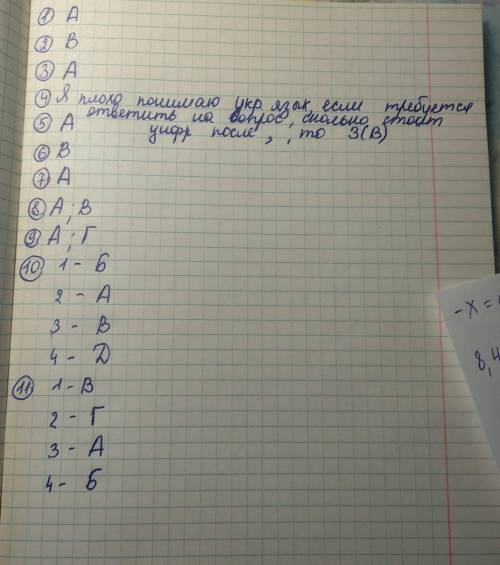 ① А
② В
③ А
④ Я плохо понимаю укр язык, если требуется
ответить на вопрос, сколько стоит
⑤ А цифр после , , то 3(В)
⑥ В
⑦ А
⑧ А; В
⑨ А; Г
⑩ 1 - Б
2 - А
3 - В
4 - Д
⑪ 1 - В
2 - Г
3 - А
4 - Б
-x =
8,4